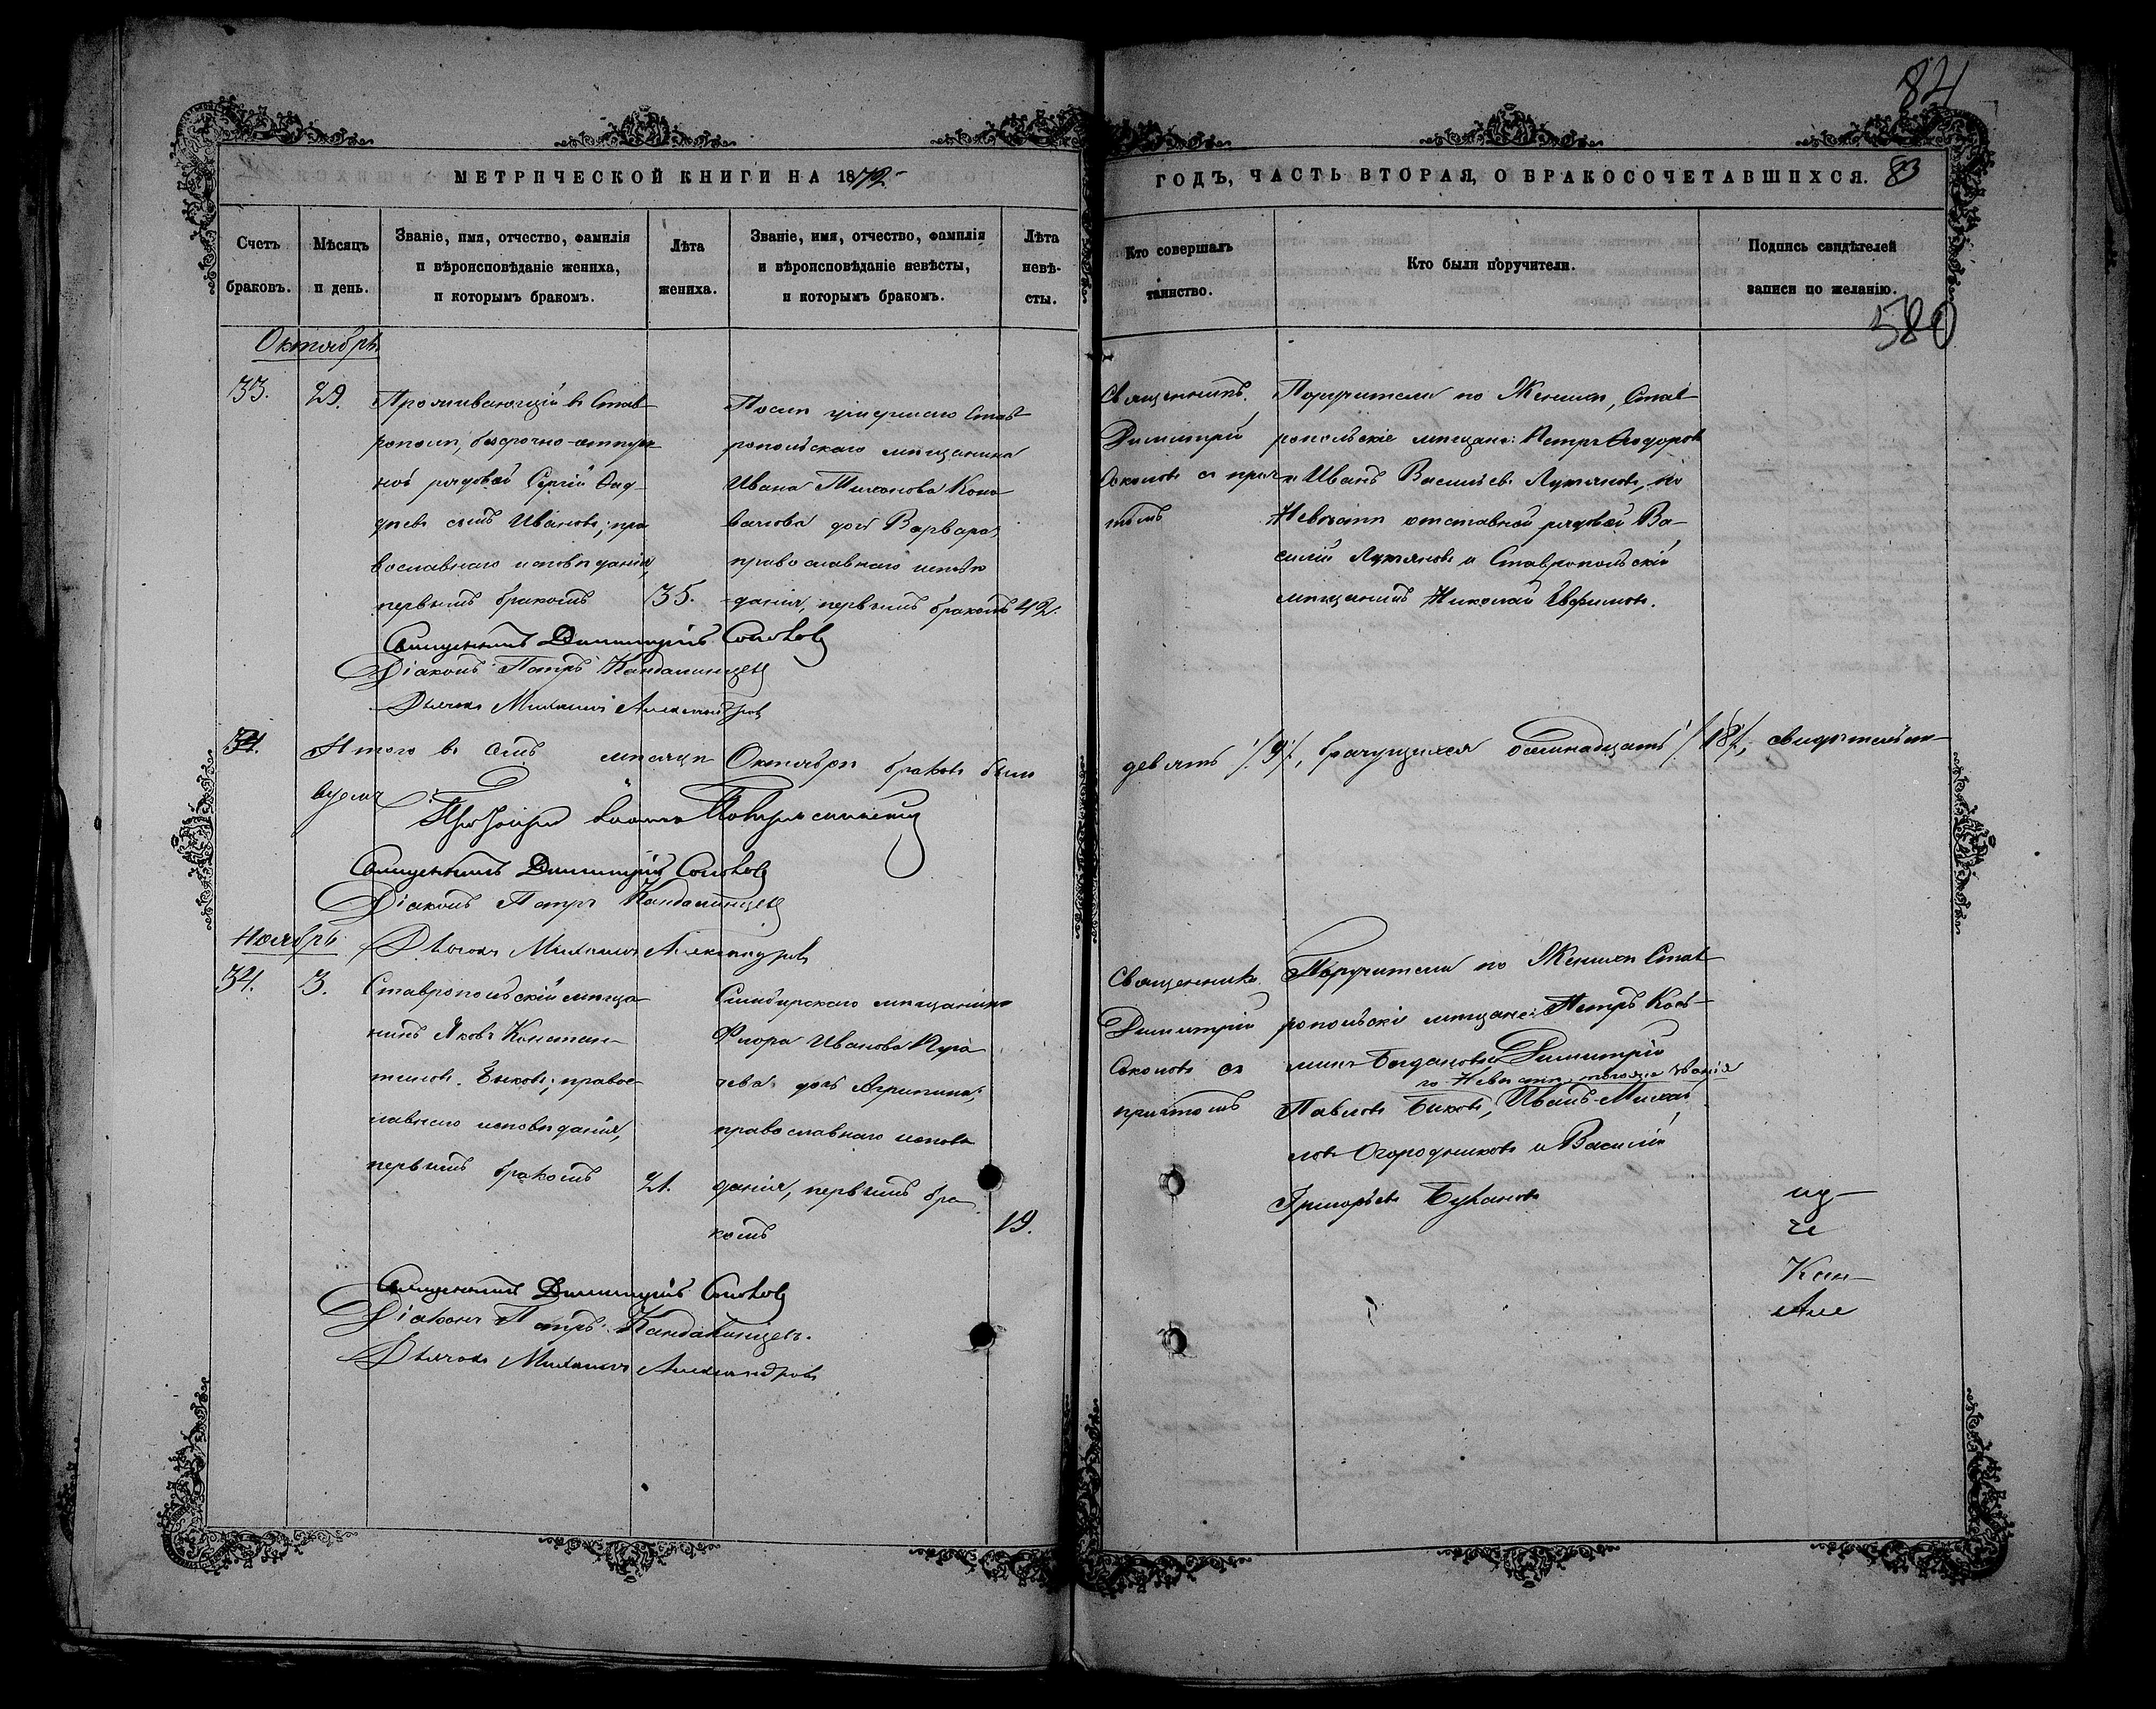 84
МЕТРИЧЕСКОЙ КНИГИ НА 1872
ГОДЪ, ЧАСТЬ ВТОРАЯ, О БРАКОСОЧЕТАВШИХСЯ. 83
Счетъ браковъ.
Мѣсяцъ и день.
Званіе, имя, отчество, фамилія
и вѣроисповѣданіе жениха,
и которымъ бракомъ.
Лѣта жениха.
Званіе, имя, отчество, фамилія
и вѣроисповѣданіе невѣсты,
и которымъ бракомъ.
Лѣта невѣ-
сты.
Кто совершалъ
таинство.
Кто были поручители.
Подпись свидѣтелей
записи по желанію.
580
Октябрь
33.
29.
Проживающій въ Став-
рополѣ, безсрочно-отпуск
ной рядовой Сергій
сынъ Ивановъ, пра
вославнаго исповѣданія,
первымъ бракомъ
35.
Послѣ умершаго Став-
ропольскаго мѣщанина
Ивана Тихонова Коно
валова дочь Варвара,
православнаго исповѣ
данія, первымъ бракомъ
42.
Священникъ
Димитрій
Соколовъ съ прич
томъ
Поручители по Женихѣ, Став-
ропольскіе мѣщане: Петръ Ѳедоровъ
и Иванъ Васильевъ Лужновъ, по
Невѣстѣ отставной рядовой Ва-
силій Лужновъ и Ставропольскій
мѣщанинъ Николай Евфимовъ.
Священникъ Димитрій Соколовъ
Діаконъ Петръ Кандалинцевъ
Дьячокъ Михаилъ Александровъ
34.
Итого въ семъ мѣсяцѣ Октябрѣ браковъ было
девять /9/, брачущихся осемнадцать /18/, свидѣтельст-
вуемъ
Священникъ Димитрій Соколовъ
Діаконъ Петръ Кандалинцевъ
Дьячокъ Михаилъ Александровъ
Ноябрь
34.
3.
Ставропольскій мѣща-
нинъ Яковъ Констан-
тиновъ Быковъ, правос-
лавнаго исповѣданія,
первымъ бракомъ
21.
Симбирскаго мѣщанина
Флора Иванова Пуга
чева дочь Агрипина,
православнаго исповѣ
данія, первымъ бра
комъ
19.
Священникъ
Димитрій
Соколовъ съ
причтомъ
Поручители по Женихѣ Став
ропольскіе мѣщане: Петръ Козь-
минъ Богдановъ и Димитрій
по Невѣстѣ, тогоже званія
Павловъ Быковъ, Иванъ Михай
ловъ Огородниковъ и Василій
Григорьевъ Букановъ
Кан-
Але
Священникъ Димитрій Соколовъ
Діаконъ Петръ Кандалинцевъ.
Дьячокъ Михаилъ Александровъ